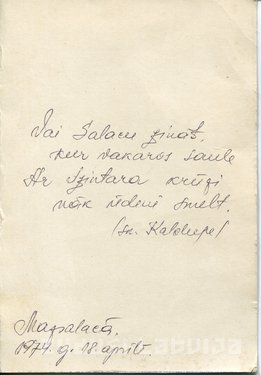 Vai Salacu zināt,
kur vakaros saule
Ar dzintara krūzi
nāk ūdeni smelt.
/Sk. Kaldupe/
Mazsalacā.
1974. g. 18 aprīlī.